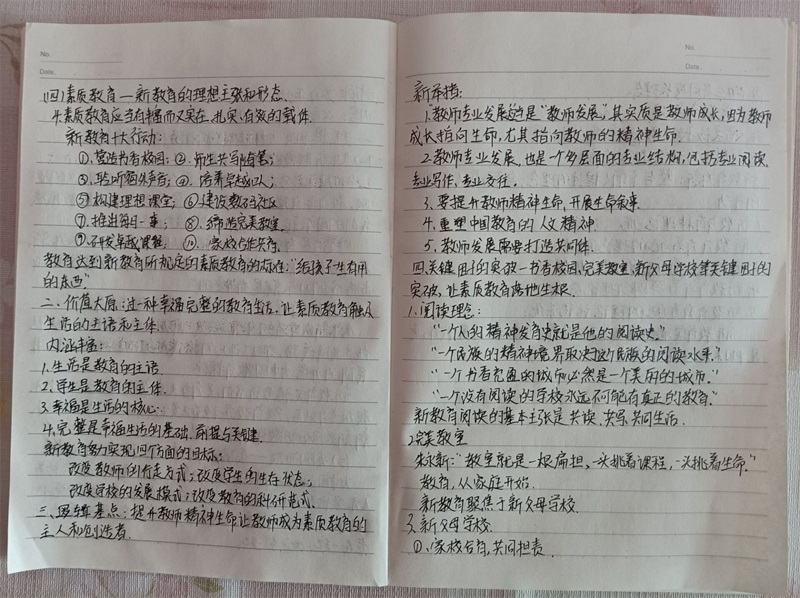 No.
Date.
(四)素质教育——新教育的理想主张和形态.
4.素质教育应当有丰富而又实在、扎实、有效的载体.
新教育十大行动:
①.营造书香校园;②.师生共写随笔;
③.聆听窗外声音;④.培养卓越口才;
⑤.构建理想课堂;⑥建设数码社区
⑦.推进每月一事;⑧.缔造完美教室.
⑨.研发卓越课程;⑩.家校合作共育.
教育达到新教育所规定的素质教育的标准:"给孩子一生有用
的东西"
二、价值大厦:过一种幸福完整的教育生活,让素质教育触及
生活的主语和主体.
内涵丰富:
1.生活是教育的主语
2.学生是教育的主体.
3.幸福是生活的核心
4.完整是幸福生活的基础、前提与关键.
新教育努力实现四个方面的目标:
改变教师的行走方式;改变学生的生存状态;
改变学校的发展模式;改变教育的科研范式.
三、逻辑基点:提升教师精神生命让教师成为素质教育的
主人和创造者.
No.
Date.
新举措:
1.教师专业发展这是"教师发展",其实质是教师成长,因为教师
成长指向生命,尤其指向教师的精神生命.
2.教师专业发展,也是一个多层面的专业结构,包括专业阅读、
专业写作、专业交往.
3.要提升教师精神生命,开展生命叙事.
4.重塑中国教育的人文精神.
5.教师发展需要打造共同体.
四.关键因子的突破—书香校园,完美教室,新父母学校等关键因子的
突破,让素质教育落地生根.
1.阅读理念:
"一个人的精神发育史就是他的阅读史."
"一个民族的精神境界取决这个民族的阅读水平."
"一个书香充盈的城市必然是一个美丽的城市."
"一个没有阅读的学校永远不可能有真正的教育."
新教育阅读的基本主张是共读、共写、共同生活.
2.完美教室
朱永新:"教室就是一根扁担,一头挑着课程,一头挑着生命."
教育,从家庭开始.
新教育聚焦于新父母学校.
3.新父母学校.
①.家校合育,共同担责.